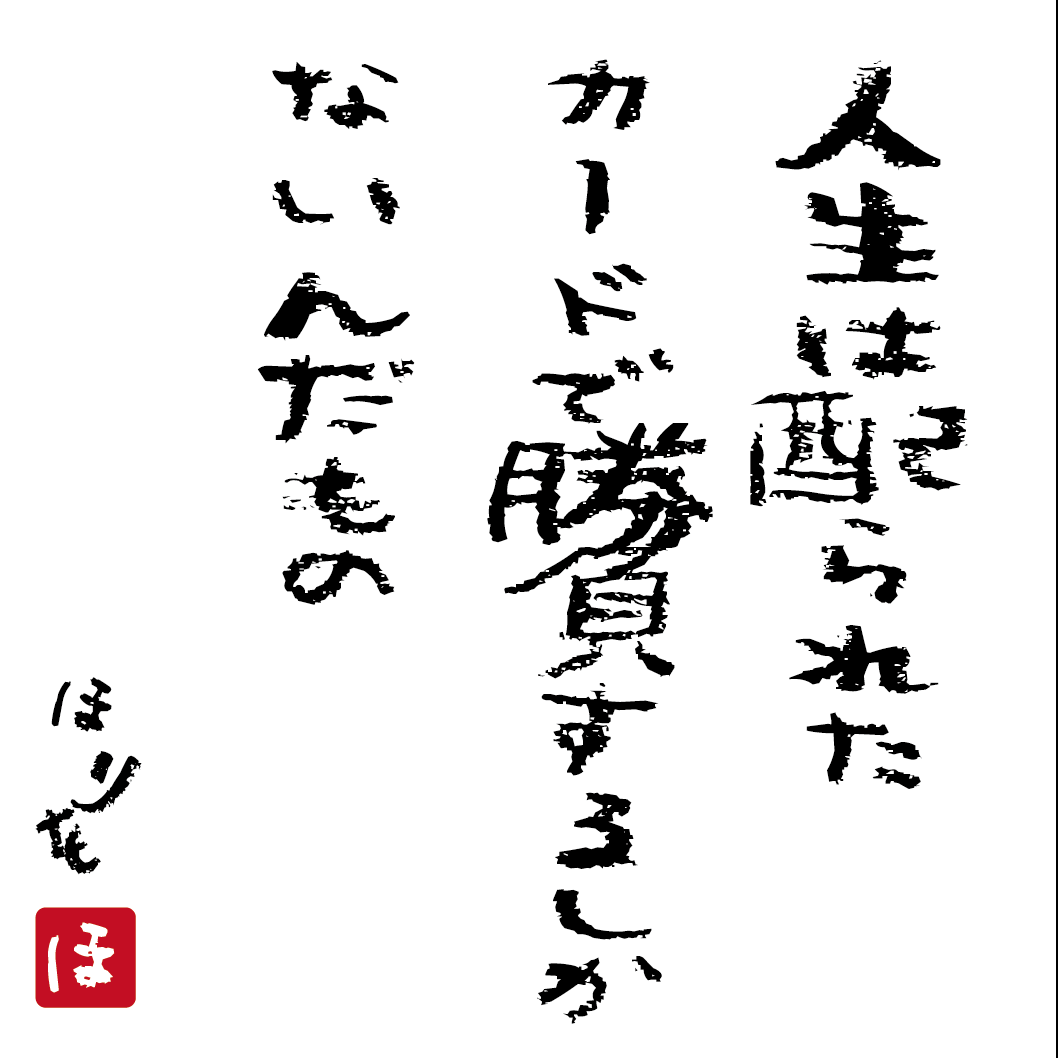 人生は配られた
カードで勝負するしか
ないんだもの
ほりを
ほ